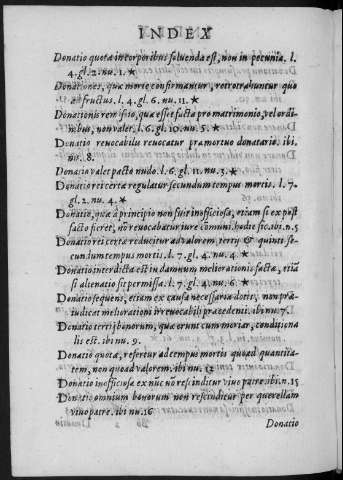 INDEX
Donatio quotæ in corporibus soluenda est, non in pecunia. l.
4. gl. 2. nu. 1. ★
Donationes, quæ morte confirmantur, retrotrahuntur quo
ad fructus. l. 4. gl. 6. nu. 11. ★
Donationis remissio, quæ esset facta pro matrimonio, vel ordi
nibus, non valet. l. 6. gl. 10. nu. 5. ★
Donatio reuocabilis reuocatur præmortuo donatario. ibi.
nu. 8.
Donatio valet pacto nudo. l. 6. gl. 11. nu. 3. ★
Donatio rei certæ regulatur secundum tempus mortis. l. 7.
gl. 2. nu. 4. ★
Donatio, quæ à principio non fuit inofficiosa, etiam si ex post
facto fieret, nõ reuocabatur iure comuni. hodie sic. ibi. n. 5
Donatio rei certæ reducitur ad valorem, tertij & quinti se-
cundum tempus mortis. l. 7. gl. 4. nu. 4. ★
Donatio interdicta est in damnum meliorationis factæ, etiã
si alienatio sit permissa. l. 7. gl. 4. nu. 6. ★
Donatio sequens, etiam ex causa necessaria dotis, non præ
iudicat meliorationi irreuocabili præcedenti. ibi nu. 7.
Donatio tertij bonorum, quæ erunt cum moriar, conditiona
lis est. ibi nu. 9.
Donatio quotæ, refertur ad tempus mortis quoad quantita
tem, non quoad valorem. ibi nu. 12
Donatio inofficiosa ex nũc nõ rescinditur viuo patre. ibi. n. 15
Donatio omnium bonorum non rescinditur per querellam
viuo patre. ibi nu. 16
Donatio